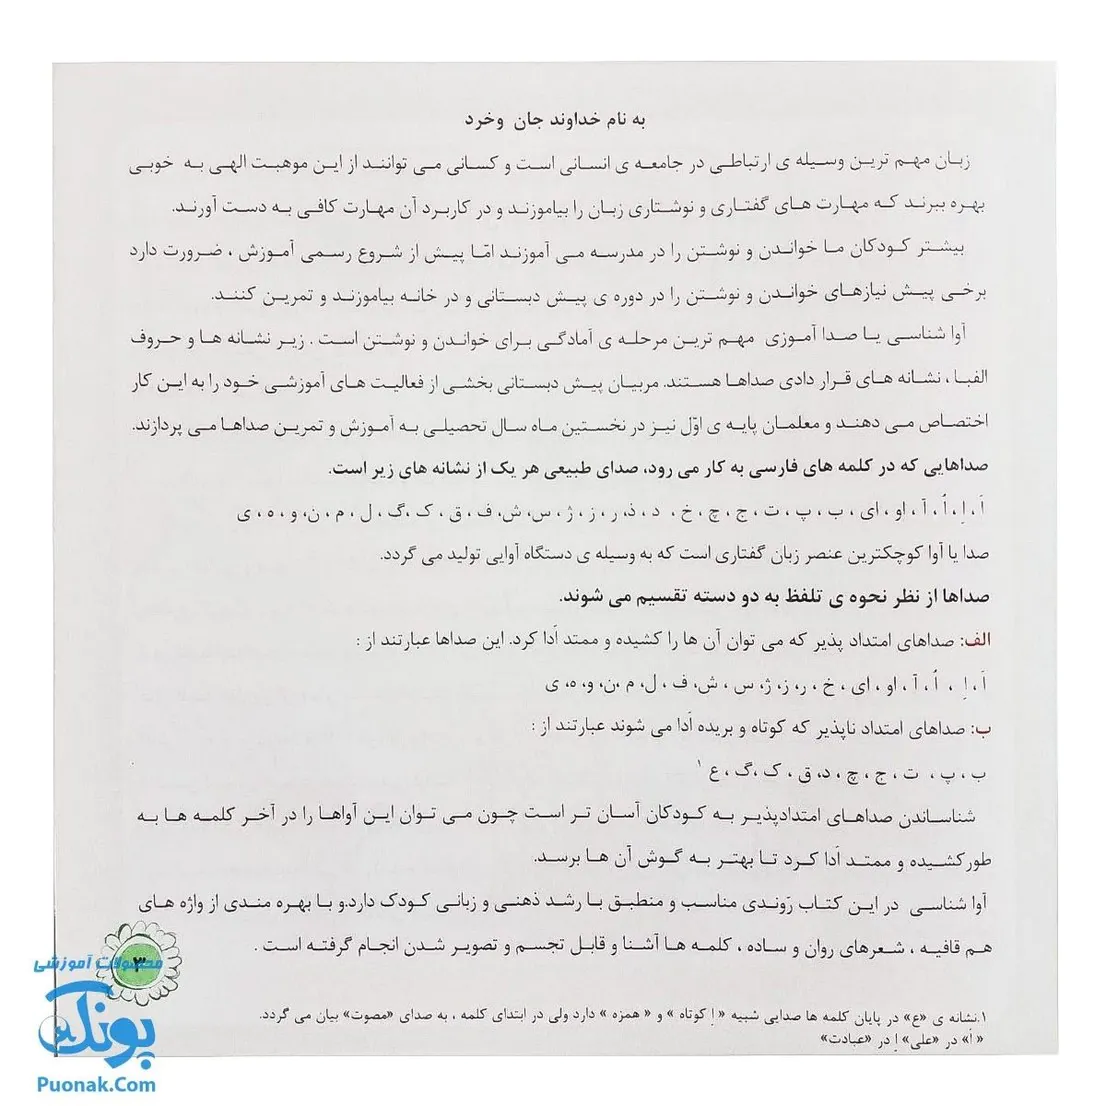 به نام خداوند جان وخرد
زبان مهم ترین وسیله ی ارتباطی در جامعه ی انسانی است و کسانی می توانند از این موهبت الهی به خوبی
بهره ببرند که مهارت های گفتاری و نوشتاری زبان را بیاموزند و در کاربرد آن مهارت کافی به دست آورند.
بیشتر کودکان ما خواندن و نوشتن را در مدرسه می آموزند امّا پیش از شروع رسمی آموزش ، ضرورت دارد
برخی پیش نیازهای خواندن و نوشتن را در دوره ی پیش دبستانی و در خانه بیاموزند و تمرین کنند.
آوا شناسی یا صدا آموزی مهم ترین مرحله ی آمادگی برای خواندن و نوشتن است . زیر نشانه ها و حروف
الفبا ، نشانه های قرار دادی صداها هستند. مربیان پیش دبستانی بخشی از فعالیت های آموزشی خود را به این کار
اختصاص می دهند و معلمان پایه ی اوّل نیز در نخستین ماه سال تحصیلی به آموزش و تمرین صداها می پردازند.
صداهایی که در کلمه های فارسی به کار می رود، صدای طبیعی هر یک از نشانه های زیر است.
اَ ، اِ ، اُ ، آ ، او ، ای ، ب ، پ ، ت ، ج ، چ ، خ ، د ، ذ، ر ، ز ، ژ ، س، ش، ف ، ق ، ک ،گ ، ل ، م ، ن، و ، ه ، ی
صدا یا آوا کوچکترین عنصر زبان گفتاری است که به وسیله ی دستگاه آوایی تولید می گردد.
صداها از نظر نحوه ی تلفظ به دو دسته تقسیم می شوند.
الف: صداهای امتداد پذیر که می توان آن ها را کشیده و ممتد اَدا کرد. این صداها عبارتند از :
اَ ، اِ ، اُ ، آ ، او ، ای ، خ ، ر، ز، ژ، س ، ش، ف ، ل، م ،ن، و، ه، ی
ب: صداهای امتداد ناپذیر که کوتاه و بریده اَدا می شوند عبارتند از :
ب ، پ ، ت ، ج ، چ ، د، ق ، ک ،گ ، ع ۱
شناساندن صداهای امتدادپذیر به کودکان آسان تر است چون می توان این آواها را در آخر کلمه ها به
طورکشیده و ممتد اَدا کرد تا بهتر به گوش آن ها برسد.
آوا شناسی در این کتاب رَوندی مناسب و منطبق با رشد ذهنی و زبانی کودک دارد.و با بهره مندی از واژه های
هم قافیه ، شعرهای روان و ساده ، کلمه ها آشنا و قابل تجسم و تصویر شدن انجام گرفته است .
۳
محصولات آموزشی
پونک
Puonak.Com
۱.نشانه ی «ع» در پایان کلمه ها صدایی شبیه « اِ کوتاه » و « همزه » دارد ولی در ابتدای کلمه ، به صدای «مصوت» بیان می گردد.
« اَ» در «علی» اِ در «عبادت»